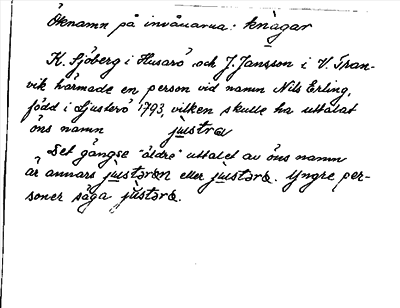 Öknamn på invånarna: knàgar
K. Sjöberg i Husarö och J. Jansson i V. Fran-
vik härmade en person vid namn Nils Erling,
född i Ljusterö 1793, vilken skulle ha uttalat
öns namn justra
Det gängse "äldre" uttalet av öns namn
är annars jùstəræn eller jùstəra. Yngre per-
soner säga jùstəra.